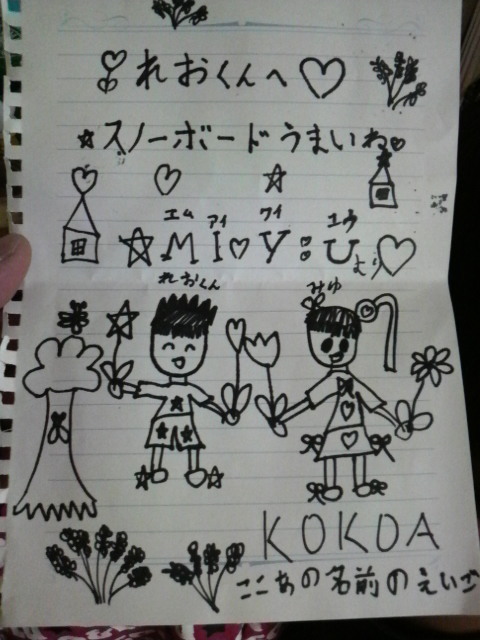 れおくんへ
スノーボードうまいね
エム アイ ワイ ユウ
MI♡Y:Uより♡
れおくん みゆ
KOKOA
ここあの名前のえいご